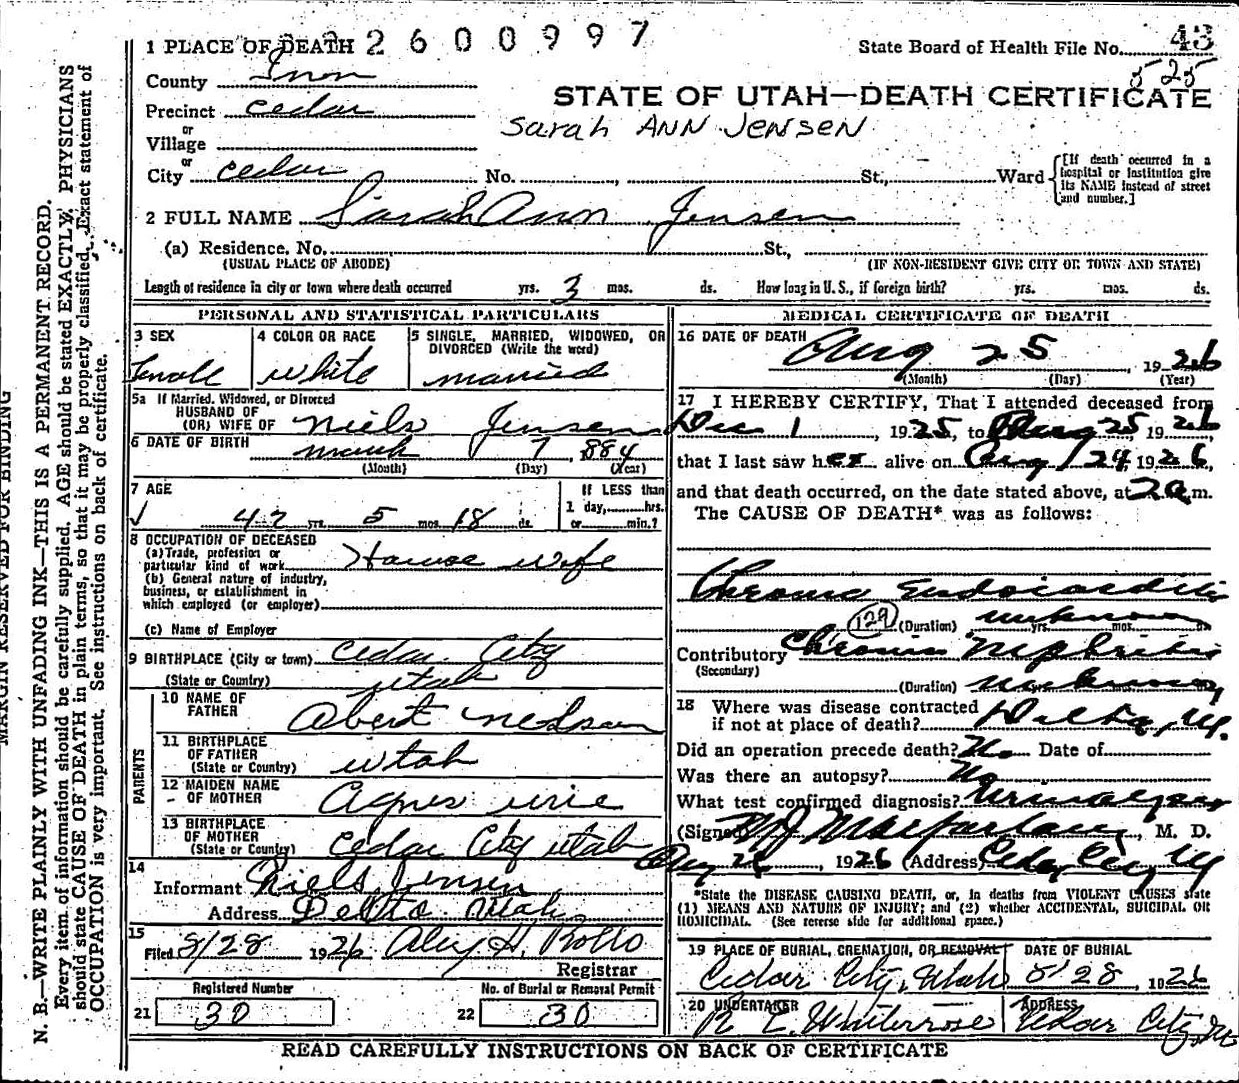 1 PLACE OF DEATH 2600997
State Board of Health File No. 43
525
County Iron
STATE OF UTAH—DEATH CERTIFICATE
Precinct Cedar
Sarah ANN JENSEN
or
Village
or
City Cedar No. , St., Ward
[If death occurred in a hospital or institution give its NAME instead of street and number.]
2 FULL NAME Sarah Ann Jensen
(a) Residence, No. St.,
(USUAL PLACE OF ABODE) (IF NON-RESIDENT GIVE CITY OR TOWN AND STATE)
Length of residence in city or town where death occurred yrs. 3 mos. ds. How long in U. S., if foreign birth? yrs. mos. ds.
PERSONAL AND STATISTICAL PARTICULARS
3 SEX 4 COLOR OR RACE 5 SINGLE, MARRIED, WIDOWED, OR
DIVORCED (Write the word)
Female white married
5a If Married, Widowed, or Divorced
HUSBAND OF
(OR) WIFE OF Niels Jensen
6 DATE OF BIRTH March 7, 1884
(Month) (Day) (Year)
7 AGE If LESS than
1 day, hrs.
42 yrs. 5 mos. 18 ds. or min.?
8 OCCUPATION OF DECEASED
(a) Trade, profession or
particular kind of work House wife
(b) General nature of industry,
business, or establishment in
which employed (or employer)
(c) Name of Employer
9 BIRTHPLACE (City or town) Cedar City
(State or Country) Utah
PARENTS
10 NAME OF
FATHER Abert Nelson
11 BIRTHPLACE
OF FATHER
(State or Country) Utah
12 MAIDEN NAME
OF MOTHER Agnes Urie
13 BIRTHPLACE
OF MOTHER
(State or Country) Cedar City Utah
14
Informant Niels Jensen
Address Delta Utah
15
Filed 8/28 1926 Alex H. Rollo
Registrar
Registered Number No. of Burial or Removal Permit
21 30 22 30
MEDICAL CERTIFICATE OF DEATH
16 DATE OF DEATH Aug 25, 1926
(Month) (Day) (Year)
17 I HEREBY CERTIFY, That I attended deceased from
Dec 1, 1925, to Aug 25 1926,
that I last saw her alive on Aug 24, 1926,
and that death occurred, on the date stated above, at 2 a m.
The CAUSE OF DEATH* was as follows:
Chronic Endocarditis
129 (Duration) unknown yrs. mos. ds.
Contributory Chronic Nephritis
(Secondary)
(Duration) unknown
18 Where was disease contracted
if not at place of death? Delta, U.
Did an operation precede death? No Date of
Was there an autopsy? No
What test confirmed diagnosis? Urinalysis
(Signed) M J Macfarlane, M. D.
Aug 26, 1926 (Address) Cedar City U
*State the DISEASE CAUSING DEATH, or, in deaths from VIOLENT CAUSES state
(1) MEANS AND NATURE OF INJURY; and (2) whether ACCIDENTAL, SUICIDAL OR
HOMICIDAL. (See reverse side for additional space.)
19 PLACE OF BURIAL, CREMATION, OR REMOVAL DATE OF BURIAL
Cedar City, Utah 8/28 1926
20 UNDERTAKER ADDRESS
Whiterrose Cedar City
READ CAREFULLY INSTRUCTIONS ON BACK OF CERTIFICATE
MARGIN RESERVED FOR BINDING
N. B.—WRITE PLAINLY WITH UNFADING INK—THIS IS A PERMANENT RECORD.
Every item of information should be carefully supplied. AGE should be stated EXACTLY. PHYSICIANS
should state CAUSE OF DEATH in plain terms, so that it may be properly classified. Exact statement of
OCCUPATION is very important. See instructions on back of certificate.